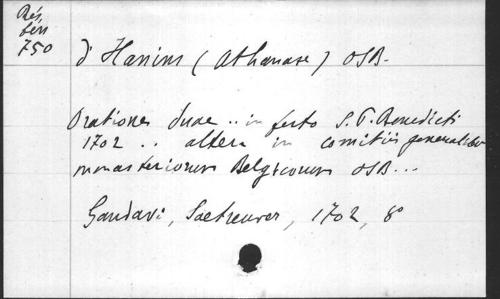 Rés.
bén
750
d'Hanins (Athanase) OSB.
Orationes duae .. in festo S. P. Benedicti
1702 .. altera in comitiis generalibus
monasteriorum Belgicorum OSB...
Gandavi, Saetreuver, 1702, 8°